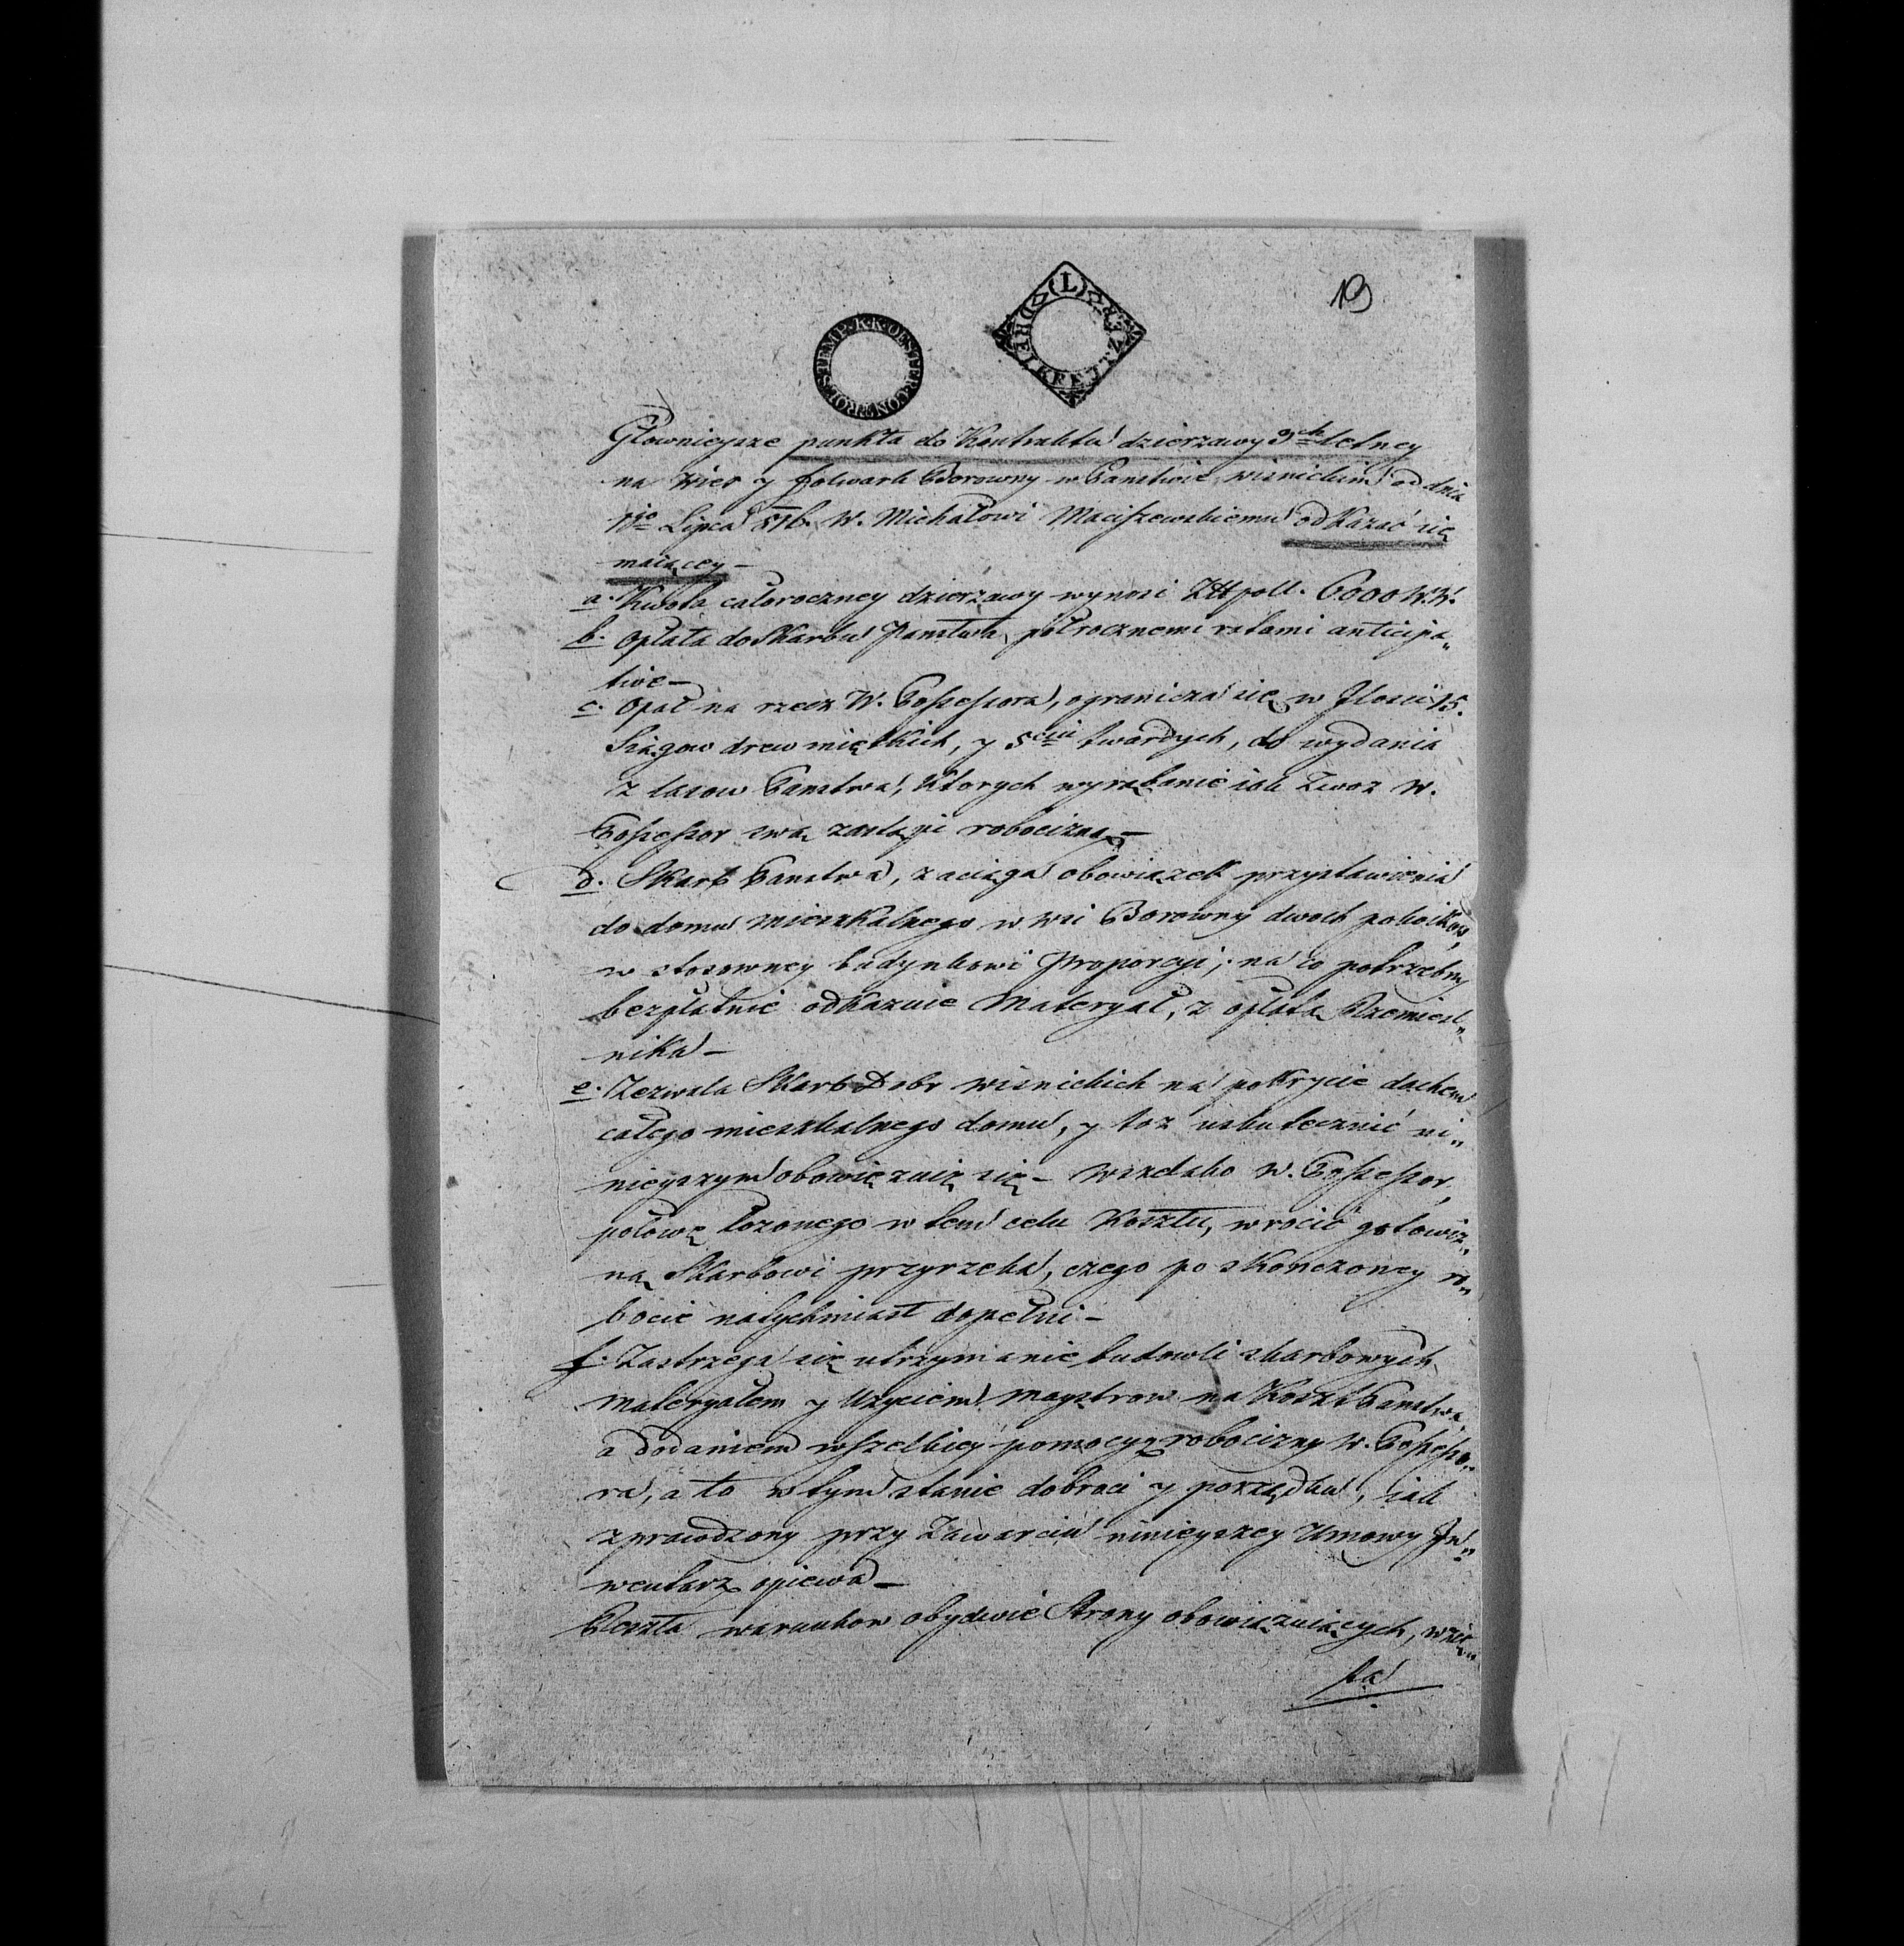 19
K.K. OESTER. CONTROL STEMP.
(L) DREI KREUTZER
Głownieysze punkta do Kontraktu dzierzawy 3ch letney
na Wieś y folwark Borowny w Panstwie wisnickim od dnia
1go Lipca W. Michałowi Maciszewskiemu odkazać się
maiącey –
a. Kwota całoroczney dzierzawy wynosi Złł poll. 6000 W.W.
b. Opłata do Skarbu Panstwa, połrocznemi ratami anticipa„
tive –
c. Opał na rzecz W. Possessora, ogranicza się w Ilosci 15.
Sągow drew miętkich, y 5ciu twardych, do wydania
z lasow Panstwa, ktorych wyrąbanie iak Zwoz W.
Possessor swą zastąpi robocizną –
d. Skarb Panstwa, zaciąga obowiązek przystawienia
do domu mieszkalnego w wsi Borowny dwoch pokoikow,
w stosowney budynkowi Proporcyi; na co potrzebny
bezpłatnie odkazuie Materyał, z opłatą Rzemiesl„
nika –
e. Zezwala Skarb Dobr wisnickich na pokrycie dachem
całego mieszkalnego domu, y toż uskutecznić ni„
nieyszym obowięzuię się – wszelako W. Possessor,
połowę łozonego w tem celu Kosztu, wrocić gotowiz„
ną Skarbowi przyrzeka, czego po skonczoney ro„
bocie natychmiast dopełni –
f. Zastrzega się utrzymanie budowli skarbowych,
Materyałem y Uzyciem Maystrow na Koszt Panstwa,
a dodaniem wszelkiey pomocy z robocizny W. Possesso„
ra, a to w tym stanie dobroci y porządku, iak
sprawdzony przy Zawarciu ninieyszey Umowy In„
wentarz opiewa –
Reszta warunkow obydwie Strony obowiązuiących, wzię„
ta